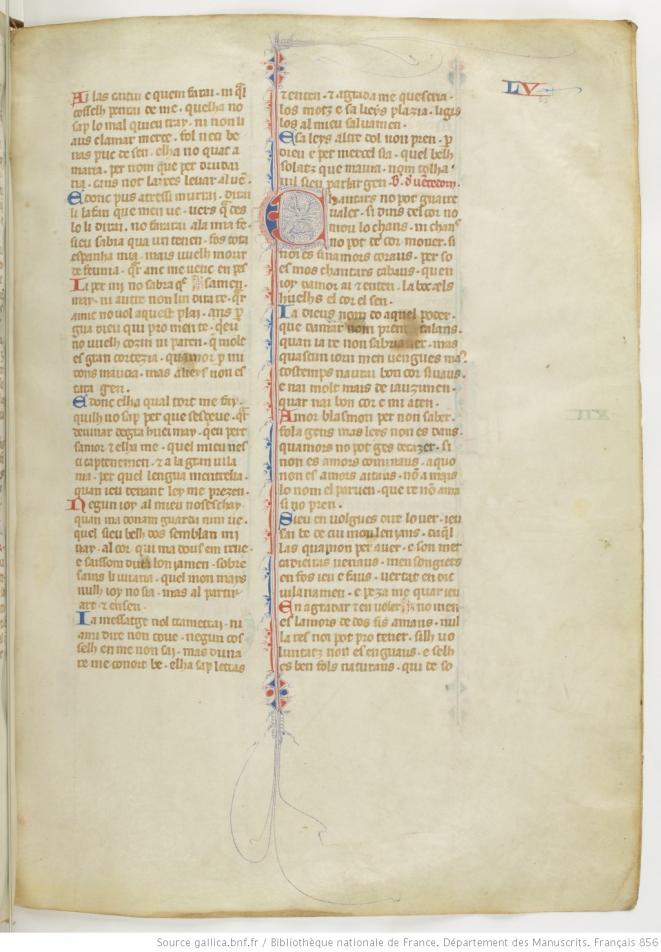 LV
Ai las caitiu e quem farai. ni q̄l
cosselh penrai de me. quelha no
sap lo mal quieu tray. ni non li
aus clamar merce. fol neci be
nas pauc de sen. elha no
maria. per nom que per drudar
ia. cans not laires levar al vē.
E donc pus atressi murrai. dirai
li lafan que men ve. vers q̄ des
lo li dirai. no farai ala mia fe.
sieu sabia qua un tenen. fos tota
espanha mia. mais vuelh morir
de feunia. q̄r anc me venc en pes
La per mi no sabra q̄s samen.
may. ni autre non lin dira re. q̄r
amic no vol aquest play. ans p̄r
gua dieu qui pro men te. q̄ieu
no vuelh cozin ni paren. q̄ mole
es gran cortezia. quamor p̄ mi
dons maucia. mas alieys non es
tara gen.
E donc elha qual tort me fay.
quilh no sap per que sesdeve. q̄r
devinar degra huei may. q̄eu pert
samor e elha me. quel mieu nesi
ci captenemen. e a la gran vila
nia. per quel lengua mentrelia.
quan ieu denant ley me prezen.
Negun ioy al mieu noseschay.
quan ma donam guarda nim ve.
quel sieu belh dos semblan mi
vay. al cor qui ma dous em reve.
e saissom dura lonjamen. sobre
sains li iuraria. quel mon mays
nulh ioy no sia. mas al partir
art e ensen.
La messatge nol trametrai. ni
a mi dire non cove. negun cos
selh en me non sai. mas duna
re me conort be. elha sap letras
e enten. e agrada me quescria.
los motz e sa lieys plazia. ligis
los al mieu salvamen.
E sa leys altre dol non pren. p̄
dieu e per merce l sia. quel belh
solatz que mavia. nom tolha
nil sieu parlar gen. B. d' ventedorn.
Chantars no pot guaire
valer. si dins del cor no
mou lo chans. ni chans
no pot de cor mover. si
noi es finamors coraus. per so
es mos chantars cabaus. quen
ioy damor ai e enten. la boca els
huelhs el cor el sen.
Ia dieus nom do aquel poder.
que damar nom prenda talans.
quan ia re non sabria aver. mas
quascun iorn men vengues maˡˢ.
tostemps naurai bon cor sivaus.
e nai molt mais de iauzimen.
quar nai bon cor e mi aten.
Amor blasmon per non saber.
fola gens mas leys non es dans.
quamors no pot ges decazer. si
non es amors comunaus. aquo
non es amors aitaus. nō a mais
lo nom el parven. que re nō ama
si no pren.
Sieu en volgues dire lo ver. ieu
sai be de cui mou lenians. daq̄l
las quamon per aver. e son mer
cadieiras venaus. mensongiers
en fos ieu e faus. vertat en dic
vilanamen. e peza me quar ieu
En agradar e en voler. no men
es lamors de dos fis amans. nul
la res noi pot pro tener. silh vo
luntatz non es enguaus. e selh
es ben fols naturaus. qui de so
Source gallica.bnf.fr / Bibliothèque nationale de France. Département des Manuscrits. Français 856